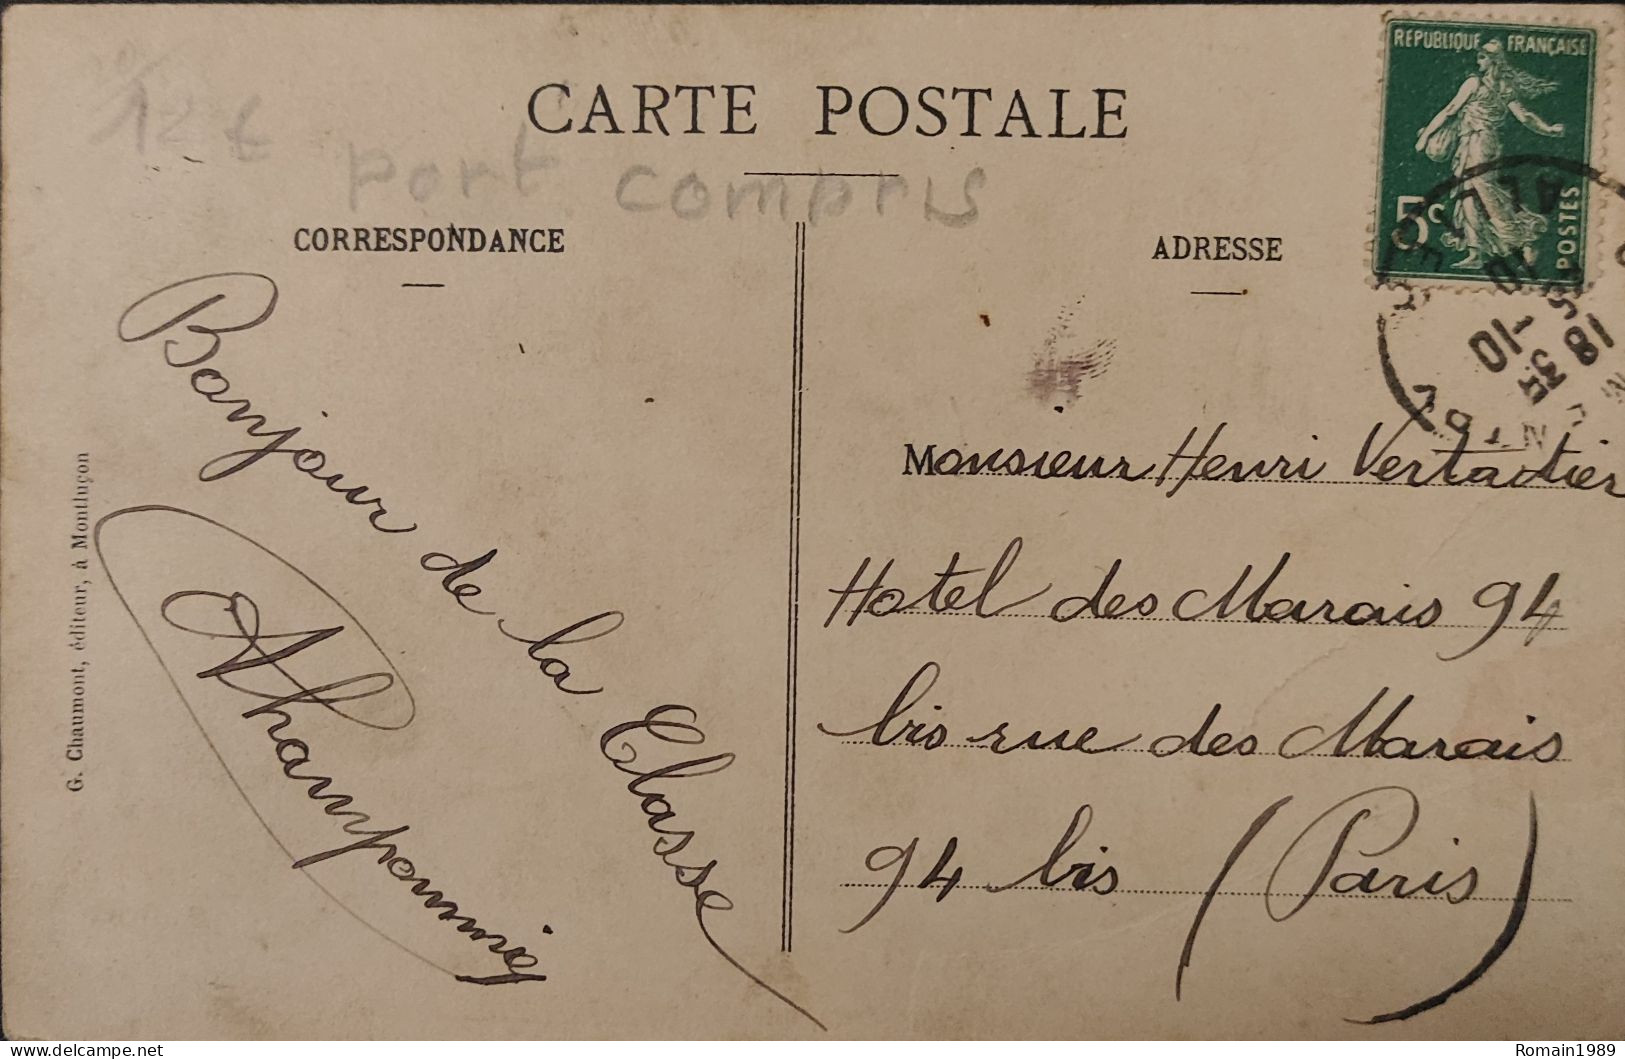 CARTE POSTALE
12 €
port compris
CORRESPONDANCE
Bonjour de la Classe
G. Chaumont, éditeur, à Montluçon
ADRESSE
REPUBLIQUE FRANÇAISE
5c
POSTES
18
-10
Monsieur Henri Vertadier
Hotel des Marais 94
bis rue des Marais
94 bis (Paris)
Romain1989